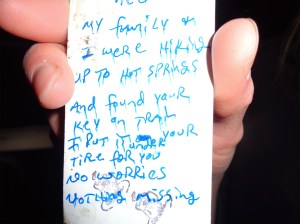 MY FAMILY &
I WERE HIKING
UP TO HOT SPRINGS
AND FOUND YOUR
KEY ON TRAIL
I PUT IT UNDER YOUR
TIRE FOR YOU
NO WORRIES
NOTHING MISSING